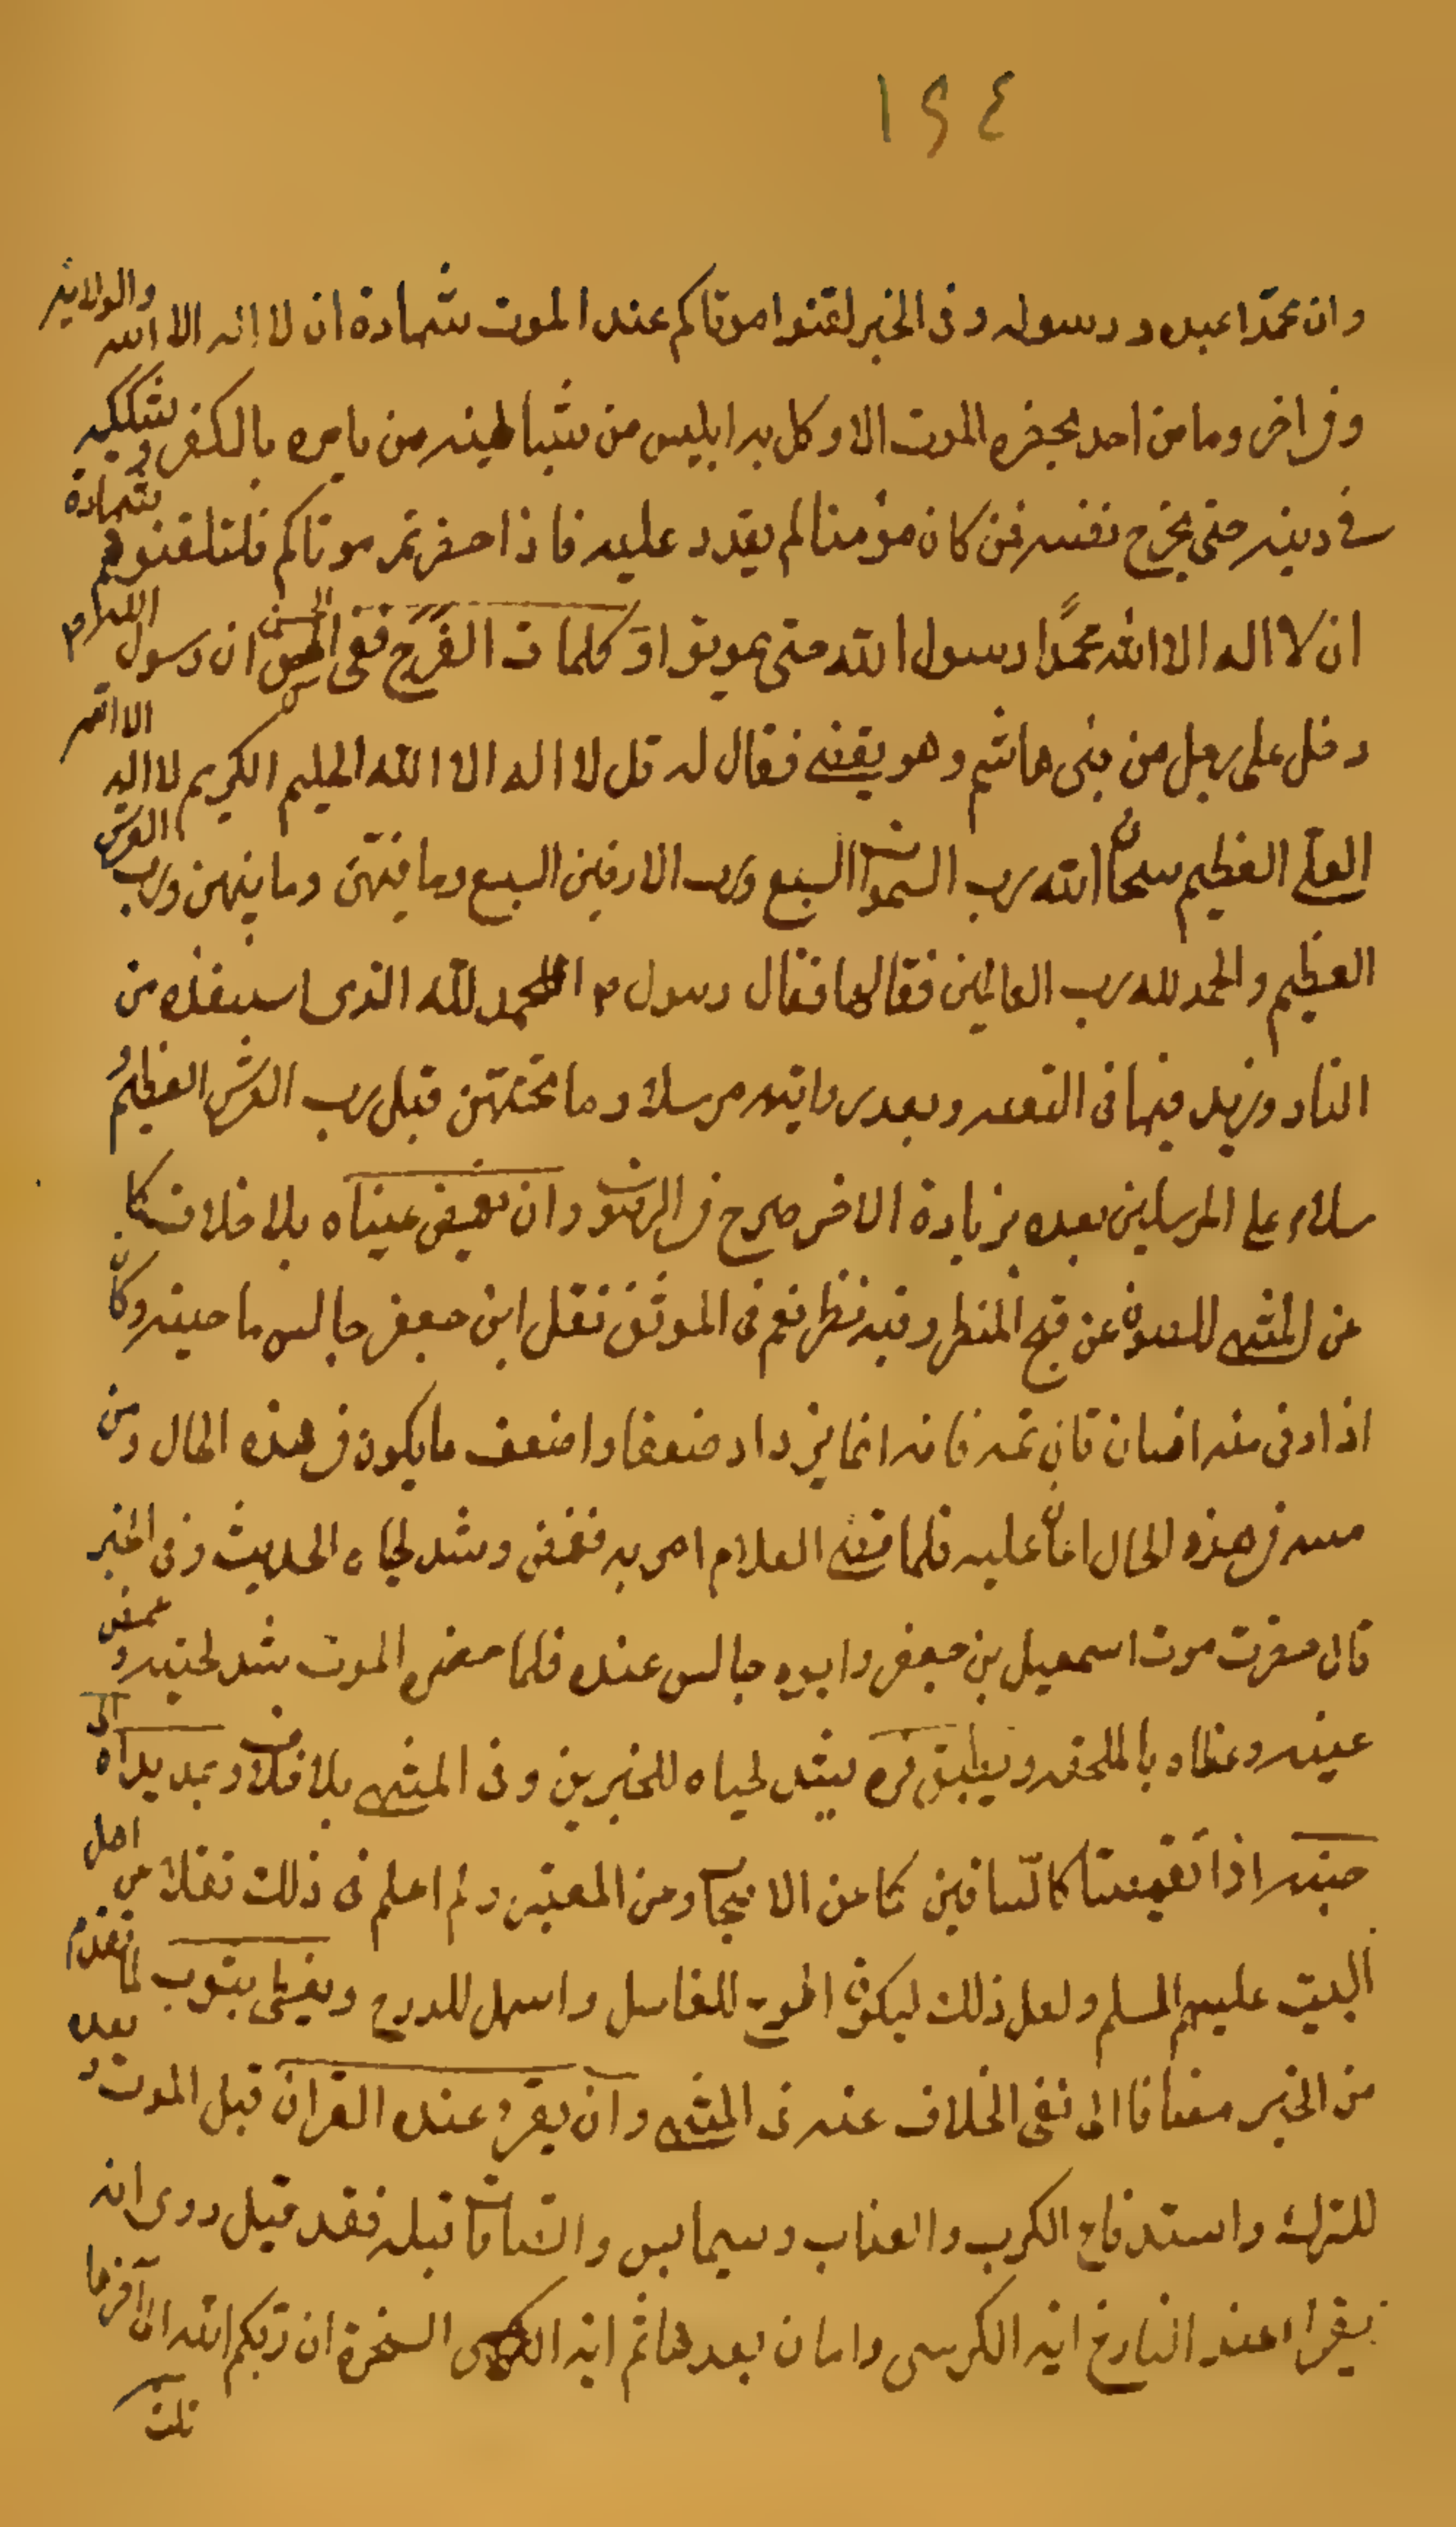 ١٢٤
وان محمّدا عبده ورسوله وفى الخبر لقنوا موتاكم عند الموت شهادة ان لا اله الا الله والولاية
وفى اخر وما من احد يحضره الموت الا وكل به ابليس من شياطينه من يامره بالكفر ويشككه
فى دينه حتى يخرج نفسه فمن كان مؤمنا لم يقدر عليه فاذا حضرتم موتاكم فلقنوهم شهادة
ان لا اله الا الله محمدًا رسول الله حتى يموتوا وَكلمات الفَرَج ففى الحسن ان رسول الله ص
دخل على رجل من بنى هاشم وهو يقضى فقال له قل لا اله الا الله الحليم الكريم لا اله الا الله
العلى العظيم سبحان الله رب السموات السبع ورب الارضين السبع وما فيهن وما بينهن ورب العرش
العظيم والحمد لله رب العالمين فقالها فقال رسول ص الحمد لله الذى استنقذه من
النار ونزيد فيها فى الفقيه وبعد روايته مرسلا وما تحتهن قبل رب العرش العظيم و
سلام على المرسلين بعده بزيادة الاخر صرح فى الرضوى وان تغمض عيناه بلا خلاف كما
عن المنتهى للصون عن قبح المنظر وفيه نظر نعم فى الموثق ثقل ابن جعفر جالس ناحية وكان
اذا دنى منه انسان قال لا تمسه فانه انما يزداد ضعفا واضعف ما يكون فى هذه الحال ومن
مسه فى هذه الحال اعان عليه فلما قضى الغلام امر به فغمض وشد لحياه الحديث وفى الخبر
قال حضرت موت اسمعيل بن جعفر وابوه جالس عنده فلما حضره الموت شد لحيته وغمض
عينيه وغطاه بالملحفه ويطبق فوه يشد لحياه للخبرين وفى المنتهى بلا خلاف وبمد يداه الى
جنبيه اذا تقبضتا كالساقين كما عن الاصحاب ومن المعتبر ولم اعلم فى ذلك نقلا عن اهل
البيت عليهم السلم ولعل ذلك ليكون اطوع للغاسل واسهل للدرج ويغشى بثوب لما تقدم
من الخبر مضافا الى نفى الخلاف عنه فى المنتهى وان يقرء عنده القران قبل الموت وبعده
للتبرك واستدفاع الكرب والعذاب وسيما يس والصافات قبله فقد قيل روى انه
يقرأ عند النازع اية الكرسى وايتان بعدها ثم اية السخرة ان ربكم الله الى آخرها
ثلث